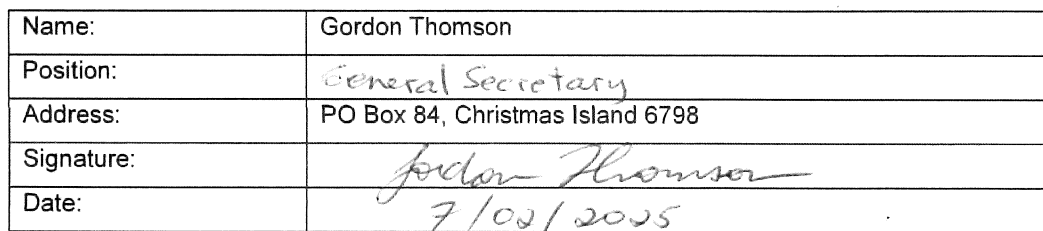 Name: Gordon Thomson
Position: General Secretary
Address: PO Box 84, Christmas Island 6798
Signature: Gordon Thomson
Date: 7/02/2025